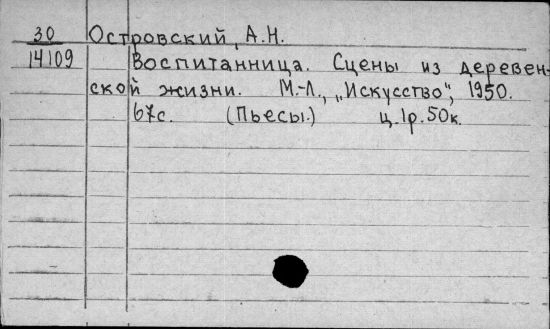 30 Островский, А.Н.
14109 Воспитанница. Сцены из деревен-
ской жизни. М.-Л., „Искусство", 1950.
67с. (Пьесы.) ц. 1р. 50к.